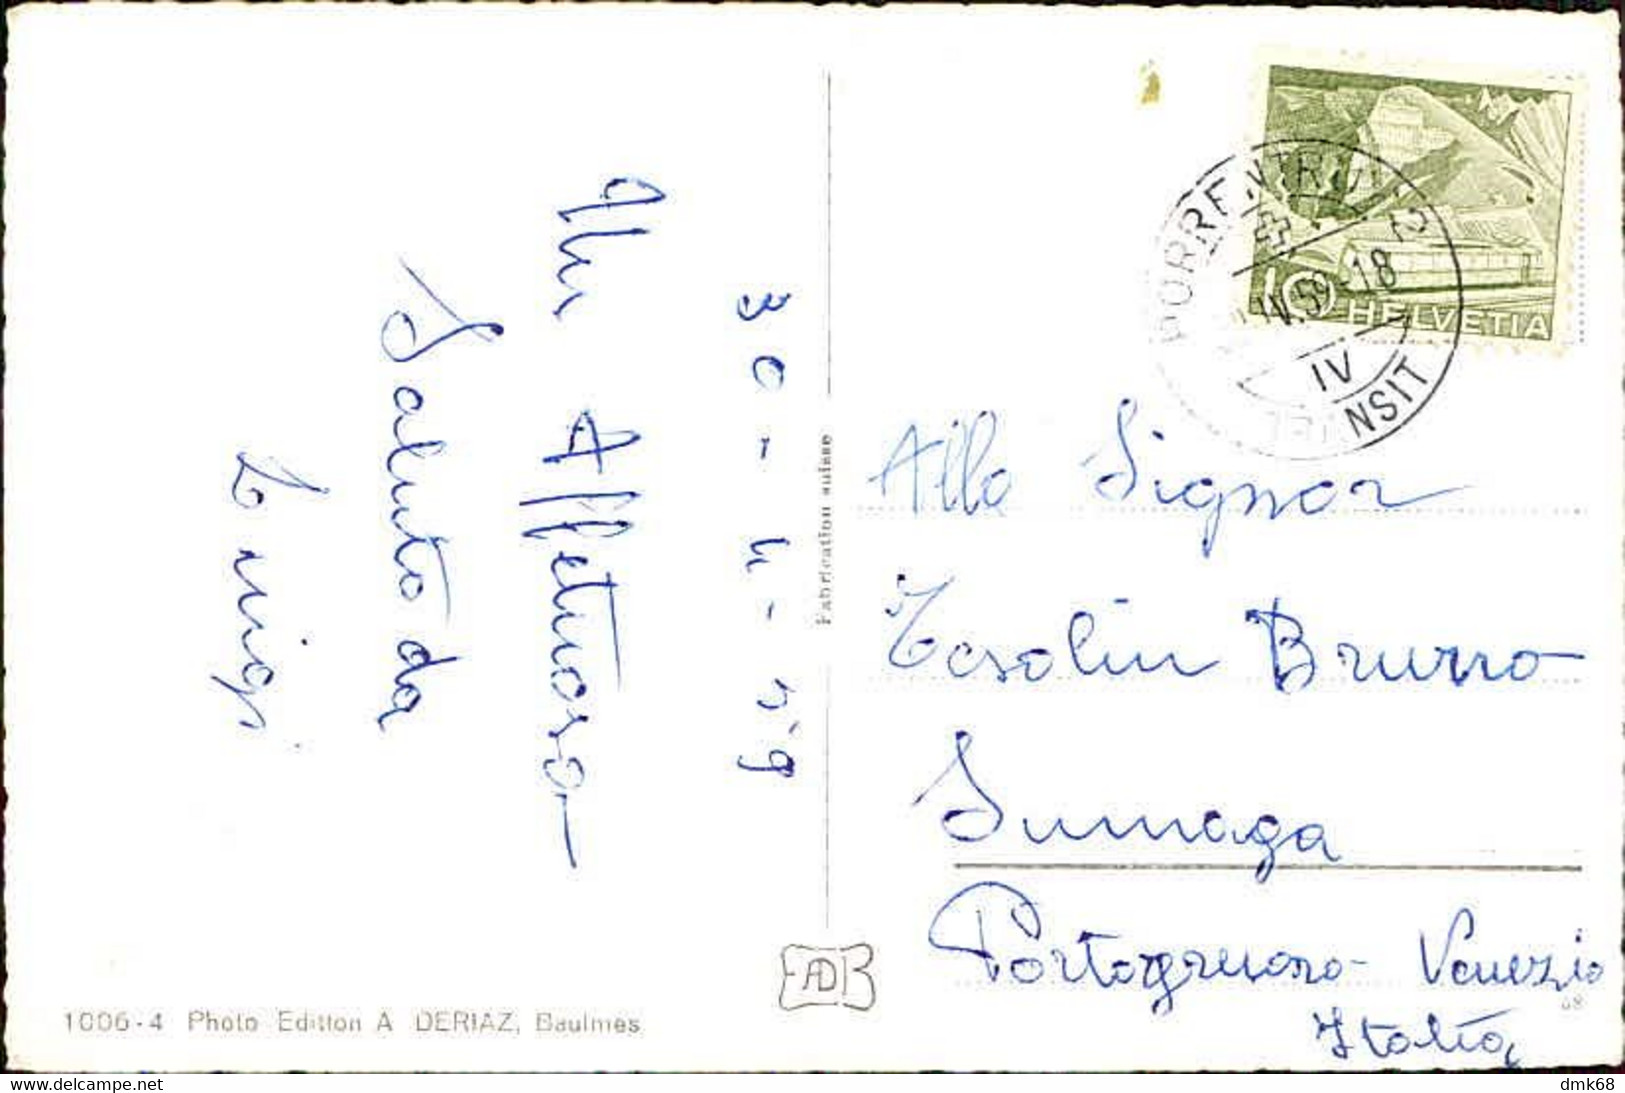 30-4-59
Un Affettuoso
Saluto da
Luigi
Fabrication suisse
1006-4 Photo Edition A. DERIAZ, Baulmes
10 HELVETIA
PORRENTRUY 2
IV.59-18
IV
TRANSIT
Alla Signor
Tesolin Bruno
Summaga
Portogruaro - Venezia
Italia
delcampe.net
dmk68